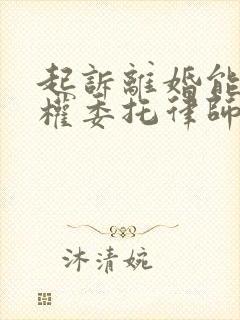 起訴離婚能
權委托律師
沐清婉